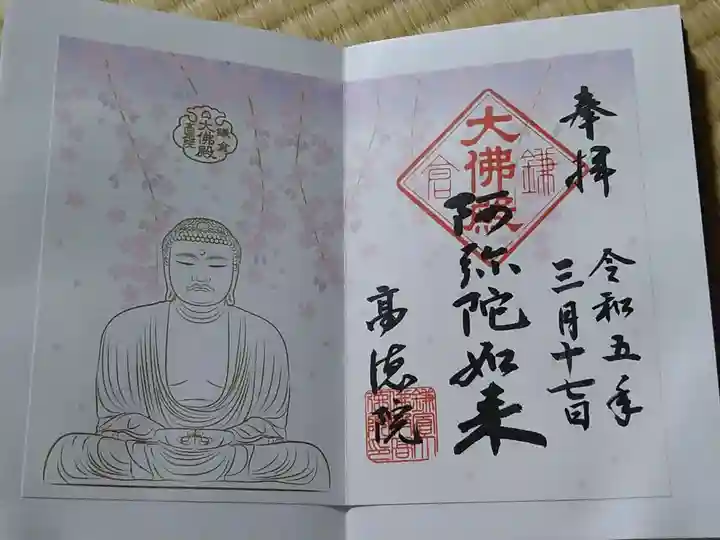 奉拝
令和五年
三月十七日
大佛殿
鎌倉
阿弥陀如来
高徳院
鎌倉
大佛殿